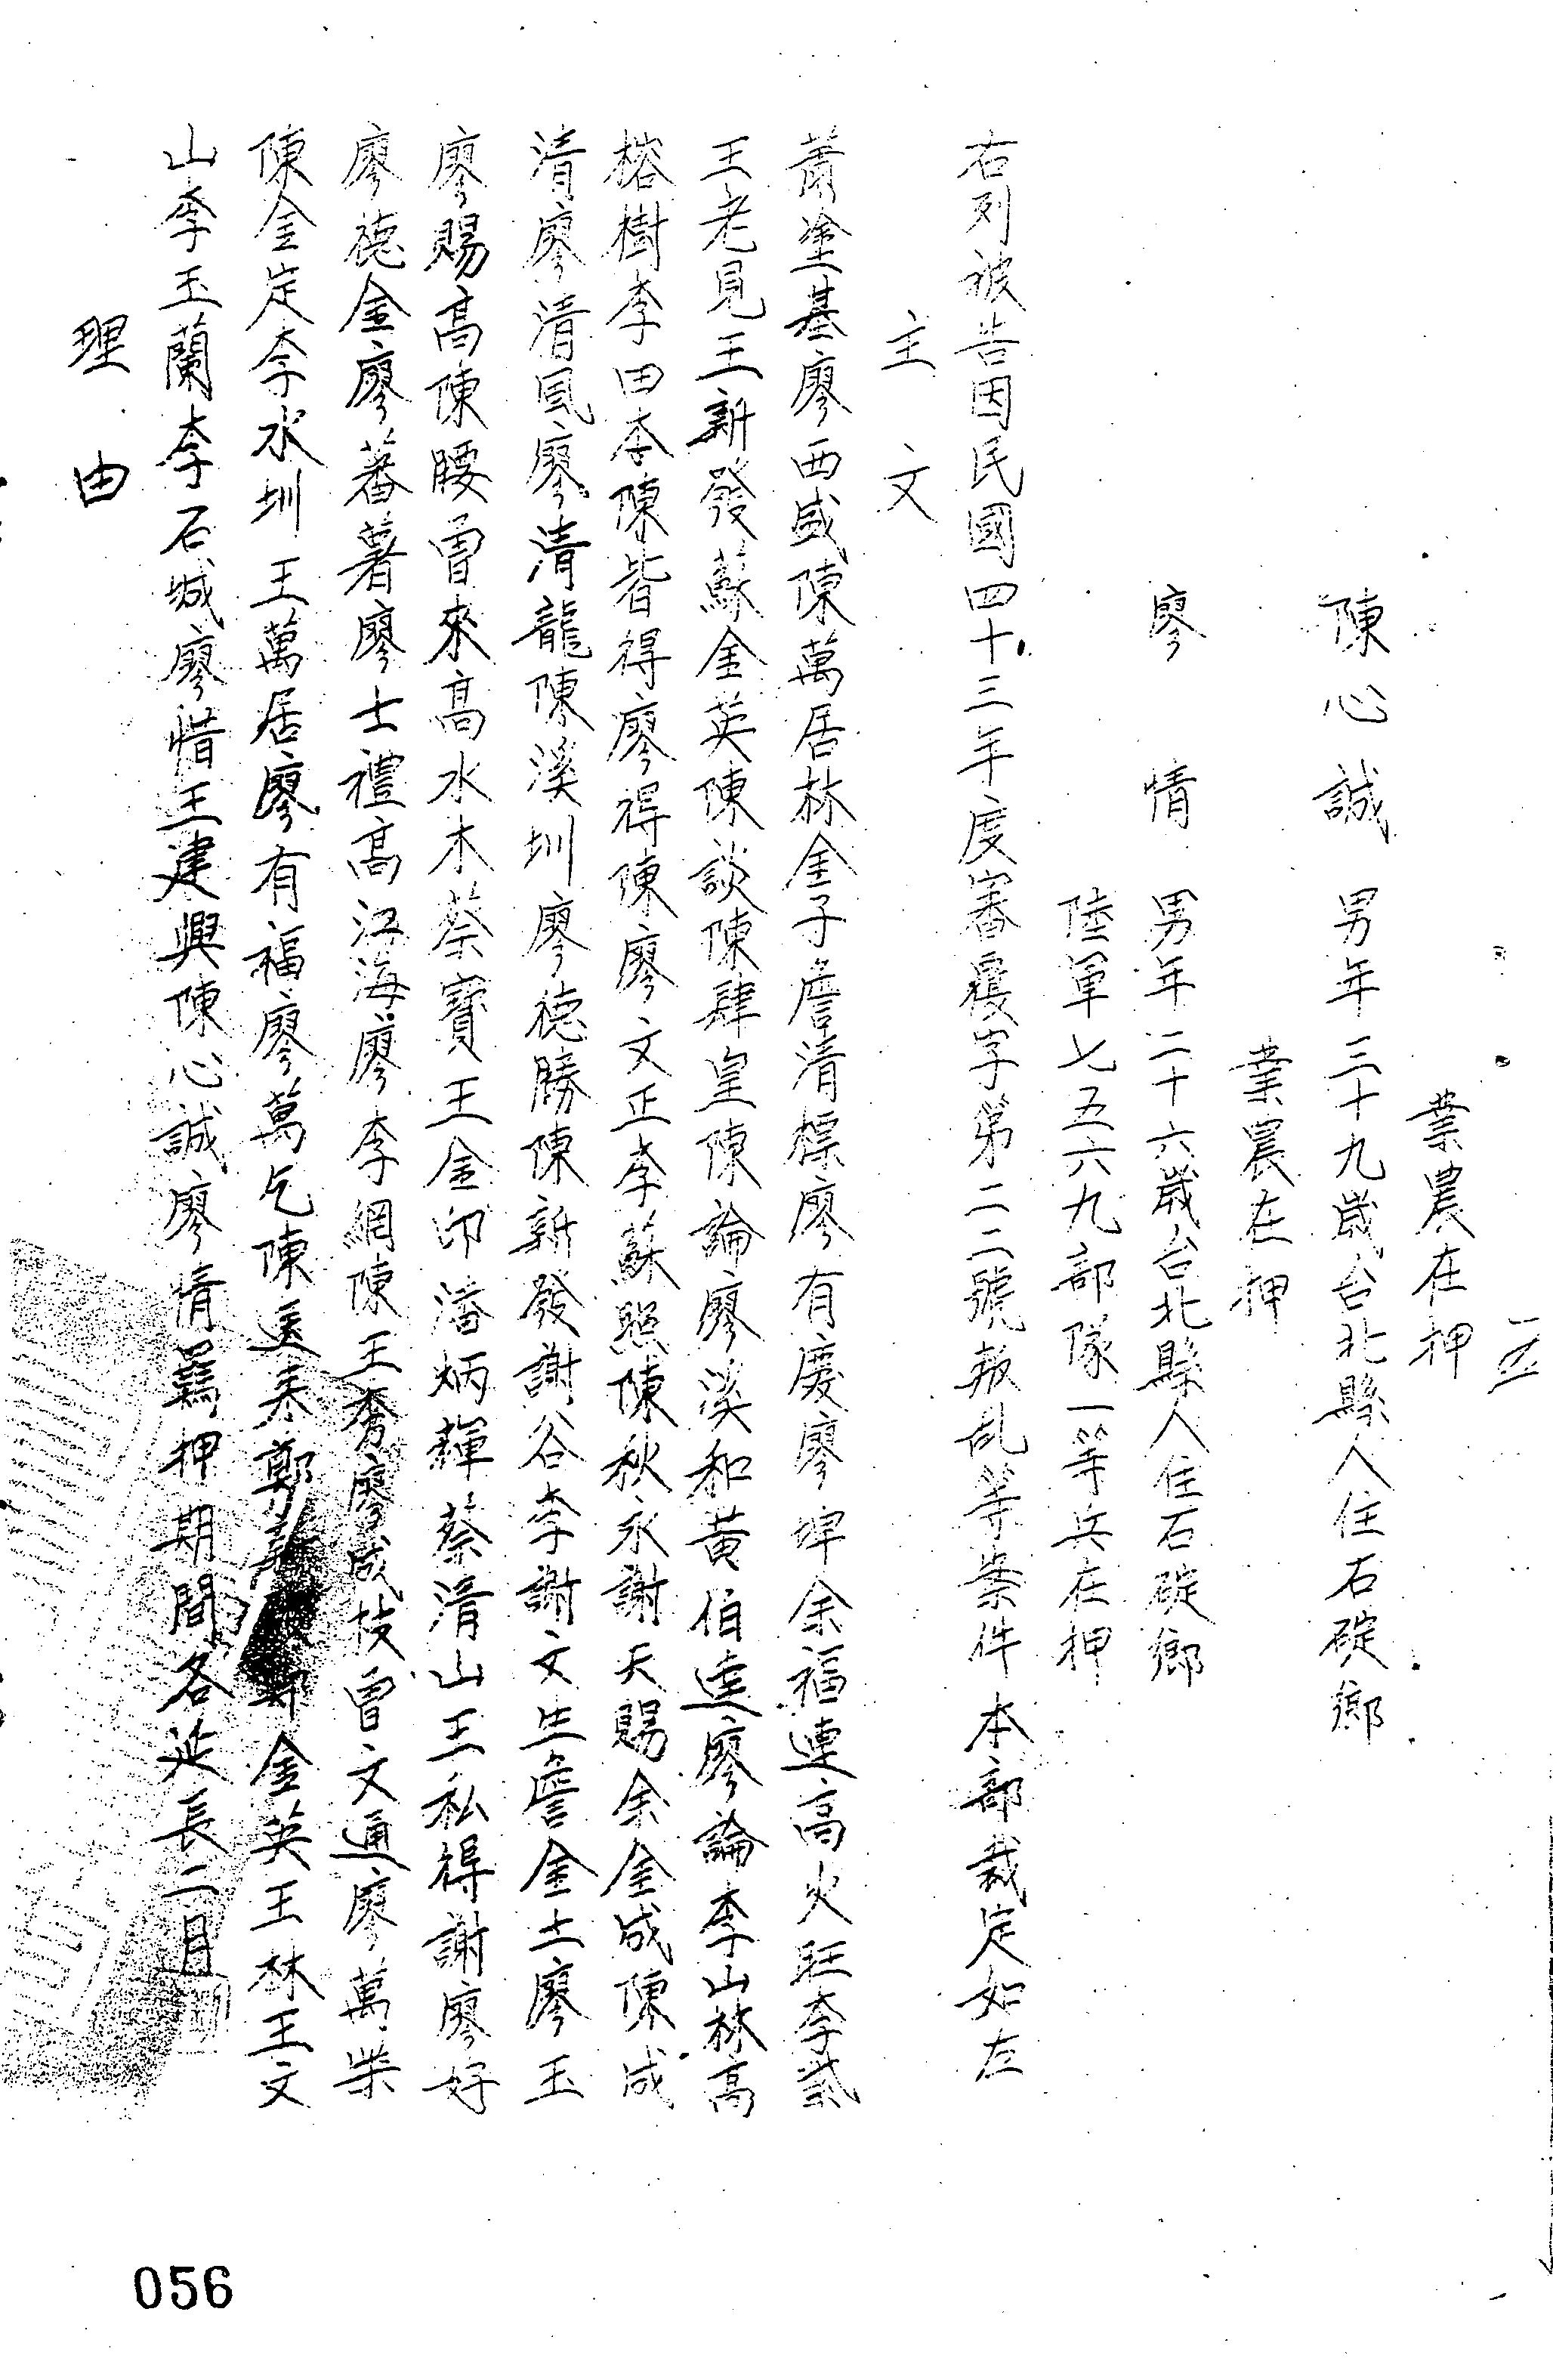 一五
業農在押
陳心誠 男年三十九歲台北縣人住石碇鄉
業農在押
廖 情 男年二十六歲台北縣人住石碇鄉
陸軍七五六九部隊一等兵在押
右列被告因民國四十三年度審覆字第二二號叛乱等案件本部裁定如左
主 文
蕭塗基廖西盛陳萬居林金子詹清標廖有慶廖埤余福連高火旺李貳
王老見王新發蘇金英陳談陳肆皇陳論廖溪和黃伯達廖論李山林高
榕樹李田李陳皆得廖得陳廖文正李蘇照陳秋永謝天賜余金成陳成
清廖清風廖清龍陳溪圳廖德勝陳新發謝谷李謝文生詹金土廖玉
廖賜高陳腰曾來高水木蔡寶王金印潘炳輝蔡清山王私得謝廖好
廖德金廖蕃薯廖士禮高江海廖李網陳王奢廖成枝曾文通廖萬柴
陳金定李水圳王萬居廖有福廖萬乞陳遠泰鄭金英王林王文
山李玉蘭李石城廖惜王建興陳心誠廖情羈押期間各延長二月
理 由
056